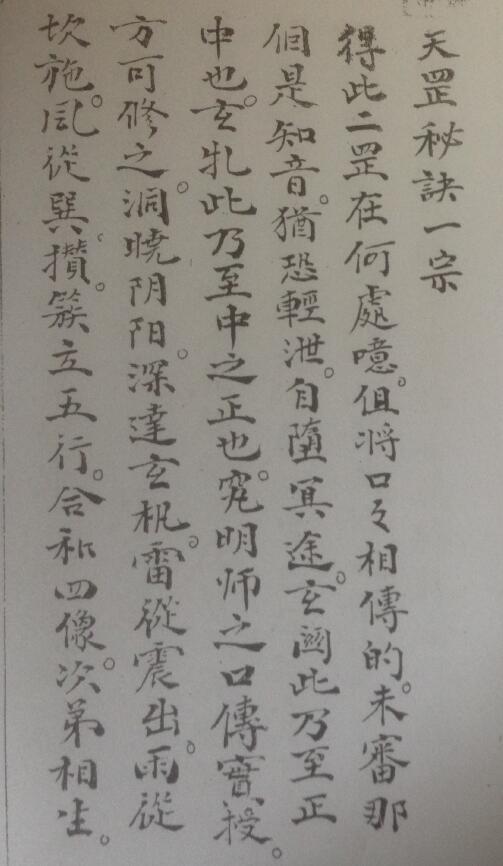 天罡秘訣一宗
得此二罡在何處噫。但将口々相傳的。未審那
個是知音。猶恐輕泄。自墮冥途。玄関此乃至正
中也。玄牝此乃至中之正也。究明师之口傳實授。
方可修之。洞曉阴阳。深達玄机。雷從震出。雨從
坎施。風從巽。攢。簇立五行。合和四像。次第相生。